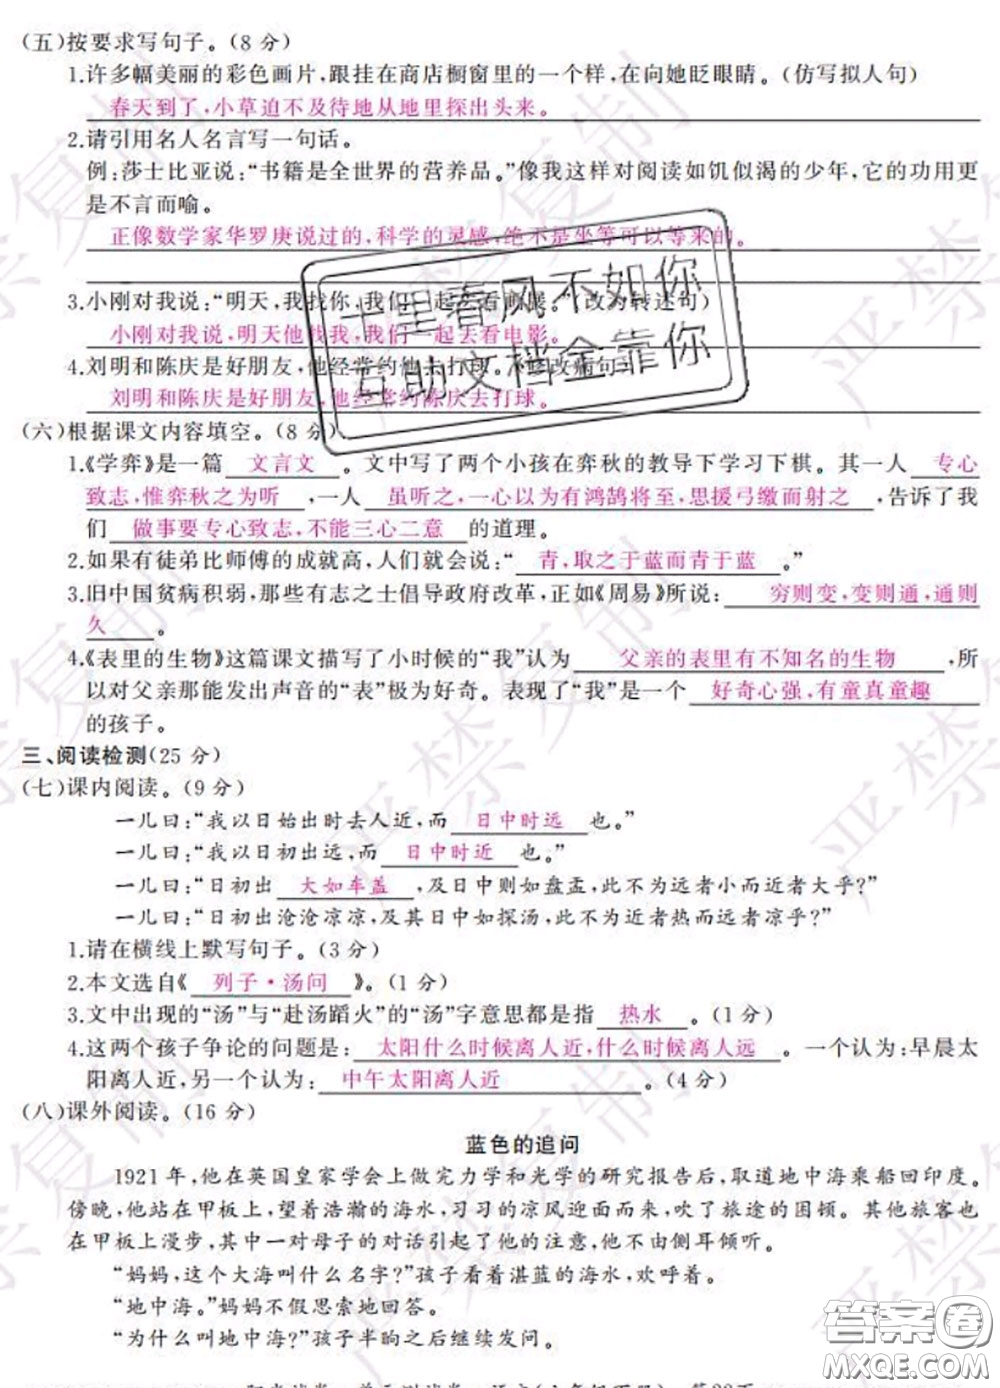 (五)按要求写句子。(8 分)
1.许多幅美丽的彩色画片,跟挂在商店橱窗里的一个样,在向她眨眼睛。(仿写拟人句)
春天到了,小草迫不及待地从地里探出头来。
2.请引用名人名言写一句话。
例:莎士比亚说:“书籍是全世界的营养品。”像我这样对阅读如饥似渴的少年,它的功用更
是不言而喻。
正像数学家华罗庚说过的,科学的灵感,绝不是坐等可以等来的。
3.小刚对我说:“明天,我找你,我们一起去看画展。”(改为转述句)
小刚对我说,明天他找我,我们一起去看电影。
4.刘明和陈庆是好朋友,他经常约他去打球。(修改病句)
刘明和陈庆是好朋友,他经常约陈庆去打球。
(六)根据课文内容填空。(8 分)
1.《学弈》是一篇 文言文 。文中写了两个小孩在弈秋的教导下学习下棋。其一人 专心
致志,惟弈秋之为听 ,一人 虽听之,一心以为有鸿鹄将至,思援弓缴而射之 ,告诉了我
们 做事要专心致志,不能三心二意 的道理。
2.如果有徒弟比师傅的成就高,人们就会说:“ 青,取之于蓝而青于蓝 。”
3.旧中国贫病积弱,那些有志之士倡导政府改革,正如《周易》所说: 穷则变,变则通,通则
久 。
4.《表里的生物》这篇课文描写了小时候的“我”认为 父亲的表里有不知名的生物 ,所
以对父亲那能发出声音的“表”极为好奇。表现了“我”是一个 好奇心强,有童真童趣
的孩子。
三、阅读检测(25 分)
(七)课内阅读。(9 分)
一儿曰:“我以日始出时去人近,而 日中时远 也。”
一儿曰:“我以日初出远,而 日中时近 也。”
一儿曰:“日初出 大如车盖 ,及日中则如盘盂,此不为远者小而近者大乎?”
一儿曰:“日初出沧沧凉凉,及其日中如探汤,此不为近者热而远者凉乎?”
1.请在横线上默写句子。(3 分)
2.本文选自《 列子·汤问 》。(1 分)
3.文中出现的“汤”与“赴汤蹈火”的“汤”字意思都是指 热水 。(1 分)
4.这两个孩子争论的问题是: 太阳什么时候离人近,什么时候离人远 。一个认为:早晨太
阳离人近,另一个认为: 中午太阳离人近 。(4 分)
(八)课外阅读。(16 分)
蓝色的追问
1921 年,他在英国皇家学会上做完力学和光学的研究报告后,取道地中海乘船回印度。
傍晚,他站在甲板上,望着浩瀚的海水,习习的凉风迎面而来,吹了旅途的困顿。其他旅客也
在甲板上漫步,其中一对母子的对话引起了他的注意,他不由侧耳倾听。
“妈妈,这个大海叫什么名字?”孩子看着湛蓝的海水,欢呼着。
“地中海。”妈妈不假思索地回答。
“为什么叫地中海?”孩子半晌之后继续发问。
千里春风不如你
互助文档金靠你
严禁复制
答案圈
MXQE.COM